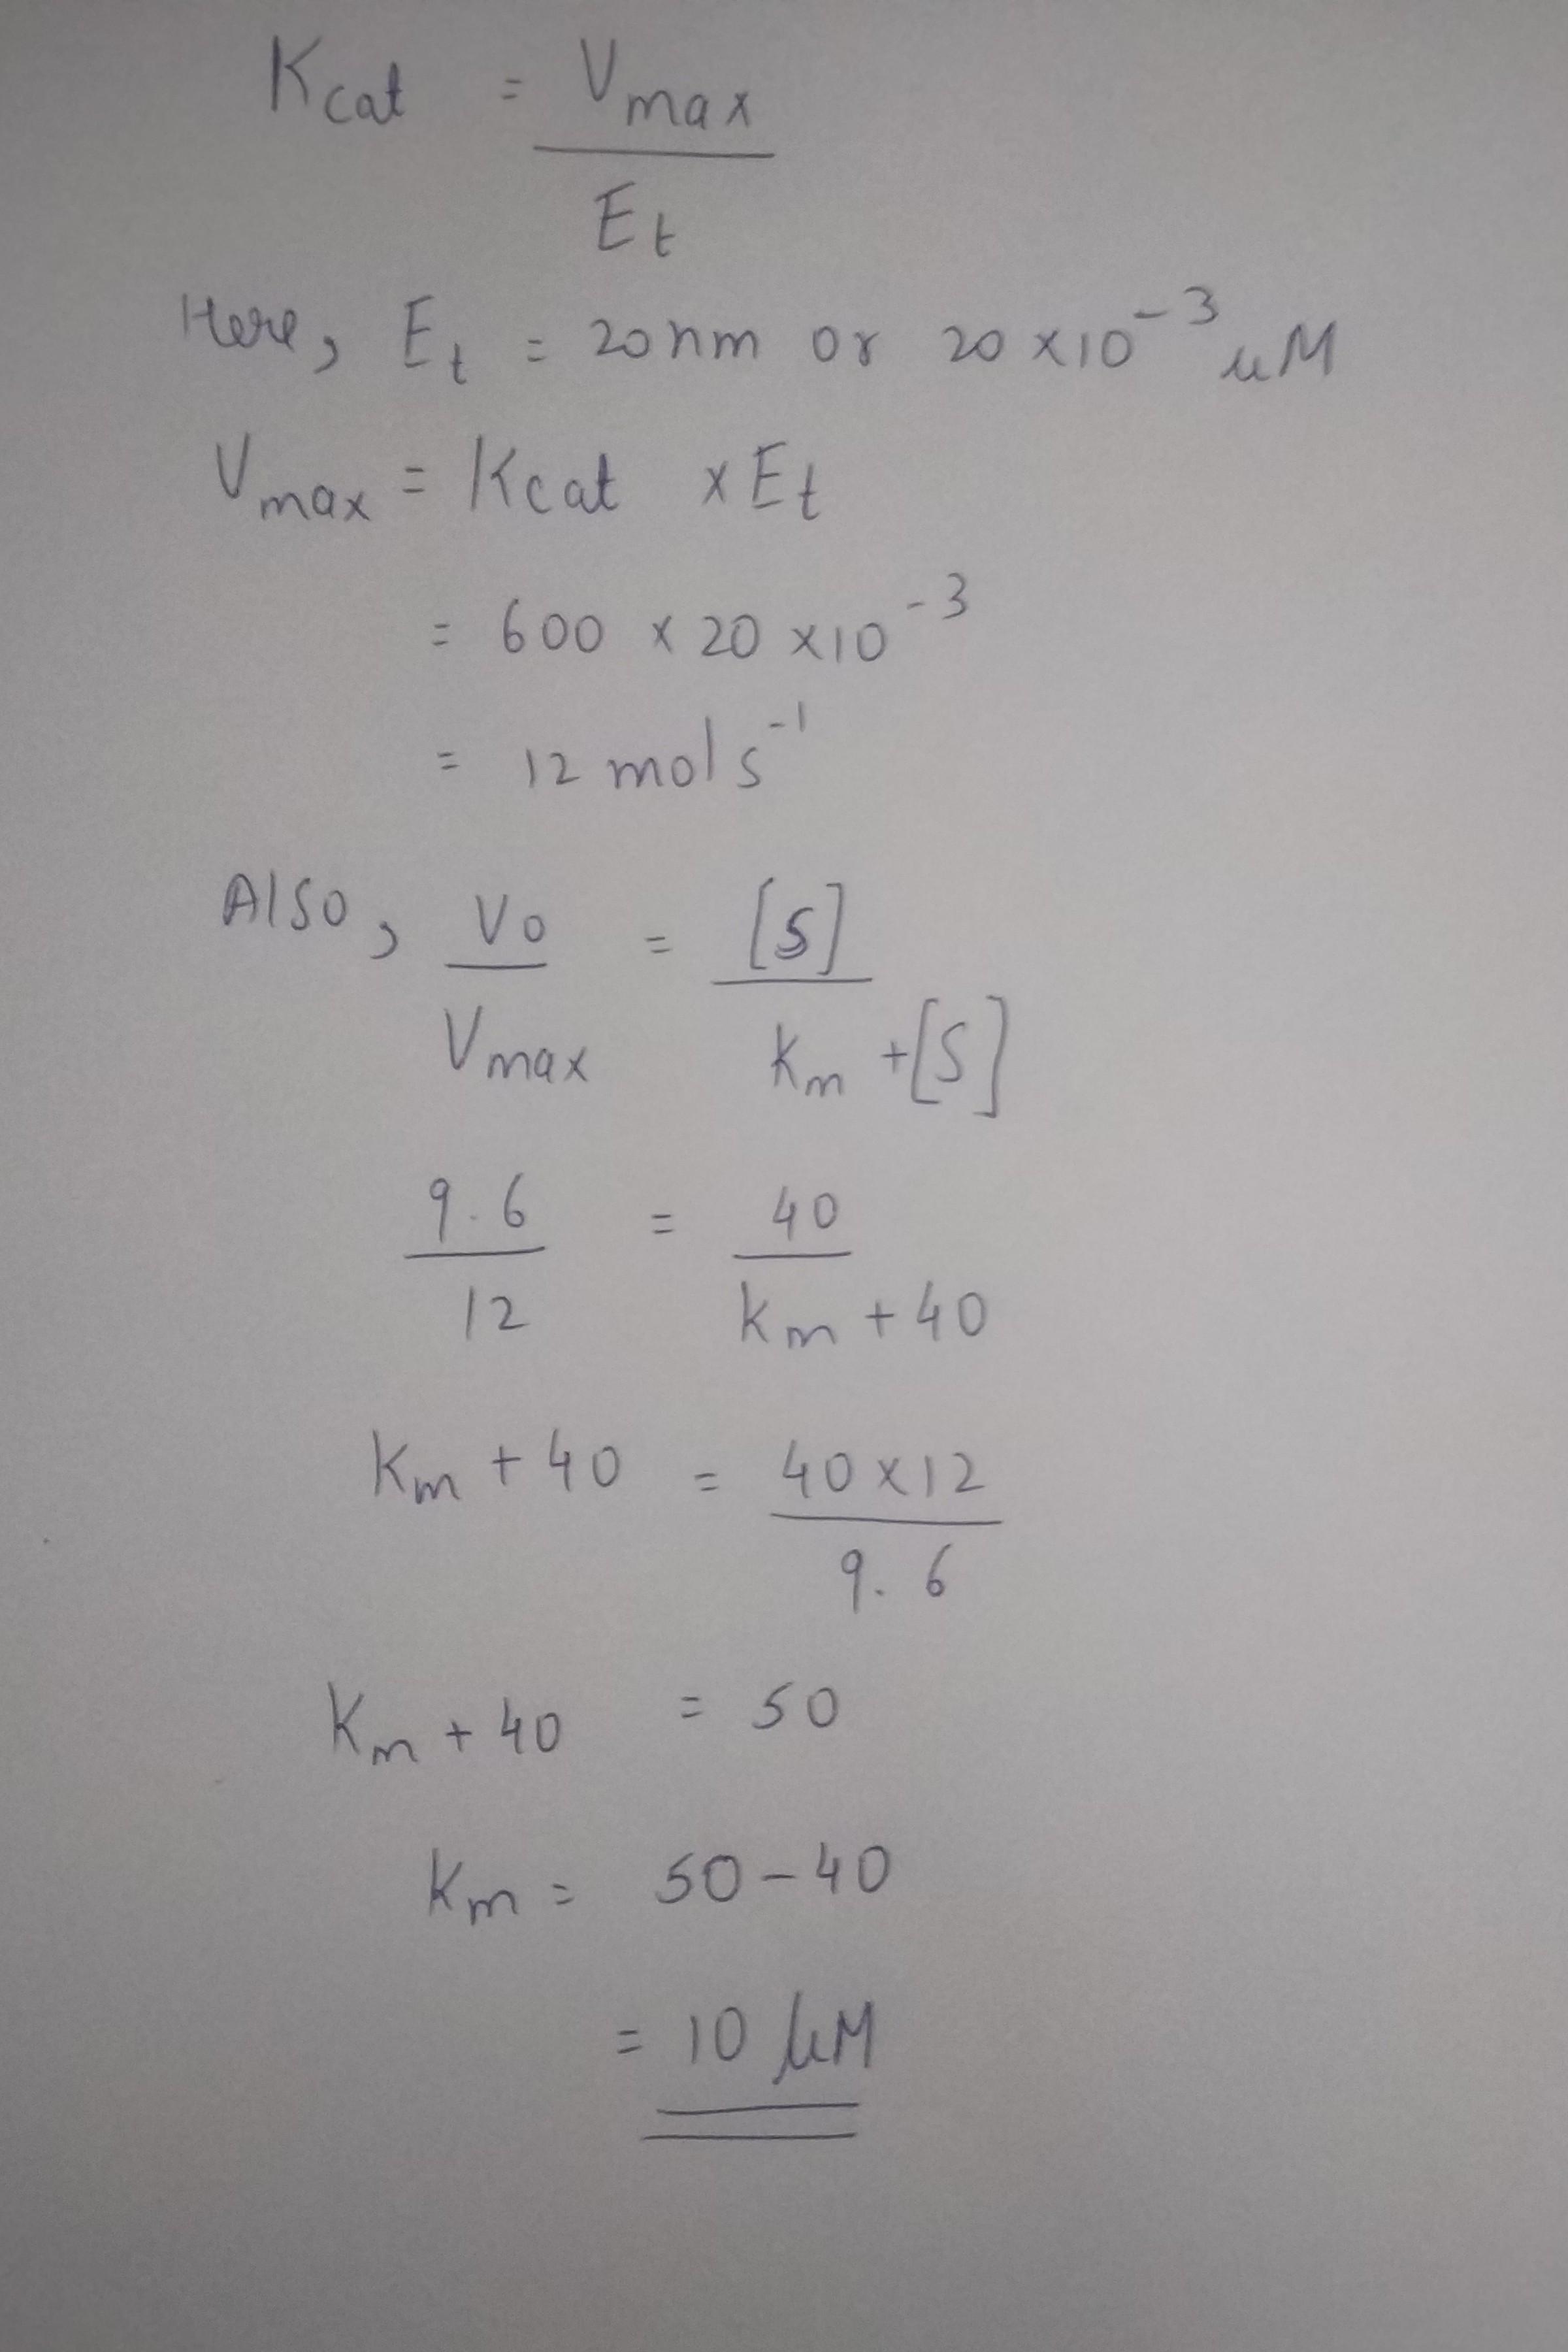 Kcat = Vmax
Et
Here, Et = 20nm or 20 x10⁻³ uM
Vmax = Kcat x Et
= 600 x 20 x10⁻³
= 12 mol s⁻¹
Also, Vo = [S]
Vmax Km +[S]
9.6 = 40
12 Km + 40
Km + 40 = 40 x 12
9.6
Km + 40 = 50
Km = 50 - 40
= 10 μM